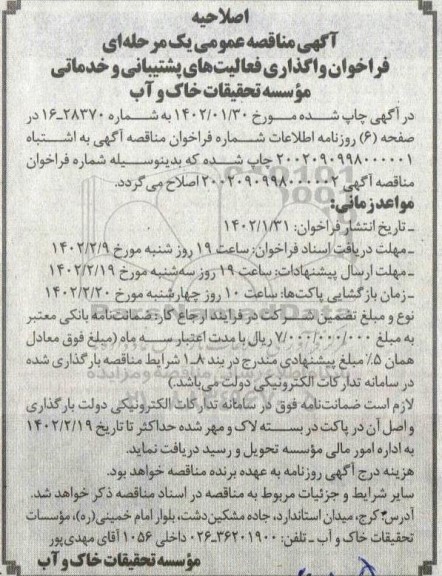 اصلاحیه
آگهی مناقصه عمومی یک مرحله‌ای
فراخوان واگذاری فعالیت‌های پشتیبانی و خدماتی
مؤسسه تحقیقات خاک و آب
در آگهی چاپ شده مورخ ۱۴۰۲/۰۱/۳۰ به شماره ۲۸۳۷۰-۱۶ در
صفحه (۶) روزنامه اطلاعات شماره فراخوان مناقصه آگهی به اشتباه
۲۰۰۲۰۹۰۹۹۸۰۰۰۰۰۱ چاپ شده که بدینوسیله شماره فراخوان
مناقصه آگهی ۲۰۰۲۰۹۰۹۹۸۰۰۰۰۰۲ اصلاح می گردد.
مواعد زمانی:
ـ تاریخ انتشار فراخوان: ۱۴۰۲/۱/۳۱
ـ مهلت دریافت اسناد فراخوان: ساعت ۱۹ روز شنبه مورخ ۱۴۰۲/۲/۹
ـ مهلت ارسال پیشنهادات: ساعت ۱۹ روز سه‌شنبه مورخ ۱۴۰۲/۲/۱۹
ـ زمان بازگشایی پاکت‌ها: ساعت ۱۰ روز چهارشنبه مورخ ۱۴۰۲/۲/۲۰
نوع و مبلغ تضمین شرکت در فرایند ارجاع کار: ضمانت‌نامه بانکی معتبر
به مبلغ ۷/۰۰۰/۰۰۰/۰۰۰ ریال با مدت اعتبار سه ماه (مبلغ فوق معادل
همان ۵٪ مبلغ پیشنهادی مندرج در بند ۸ـ۱ شرایط مناقصه بارگذاری شده
در سامانه تدارکات الکترونیکی دولت می‌باشد.)
لازم است ضمانت‌نامه فوق در سامانه تدارکات الکترونیکی دولت بارگذاری
و اصل آن در پاکت در بسته لاک و مهر شده حداکثر تا تاریخ ۱۴۰۲/۲/۱۹
به اداره امور مالی مؤسسه تحویل و رسید دریافت نماید.
هزینه درج آگهی روزنامه به عهده برنده مناقصه خواهد بود.
سایر شرایط و جزئیات مربوط به مناقصه در اسناد مناقصه ذکر خواهد شد.
آدرس: کرج، میدان استاندارد، جاده مشکین‌دشت، بلوار امام خمینی(ره)، مؤسسات
تحقیقات خاک و آب ـ تلفن: ۳۶۲۰۱۹۰۰-۰۲۶ داخلی ۱۰۵۶ آقای مهدی‌پور
مؤسسه تحقیقات خاک و آب